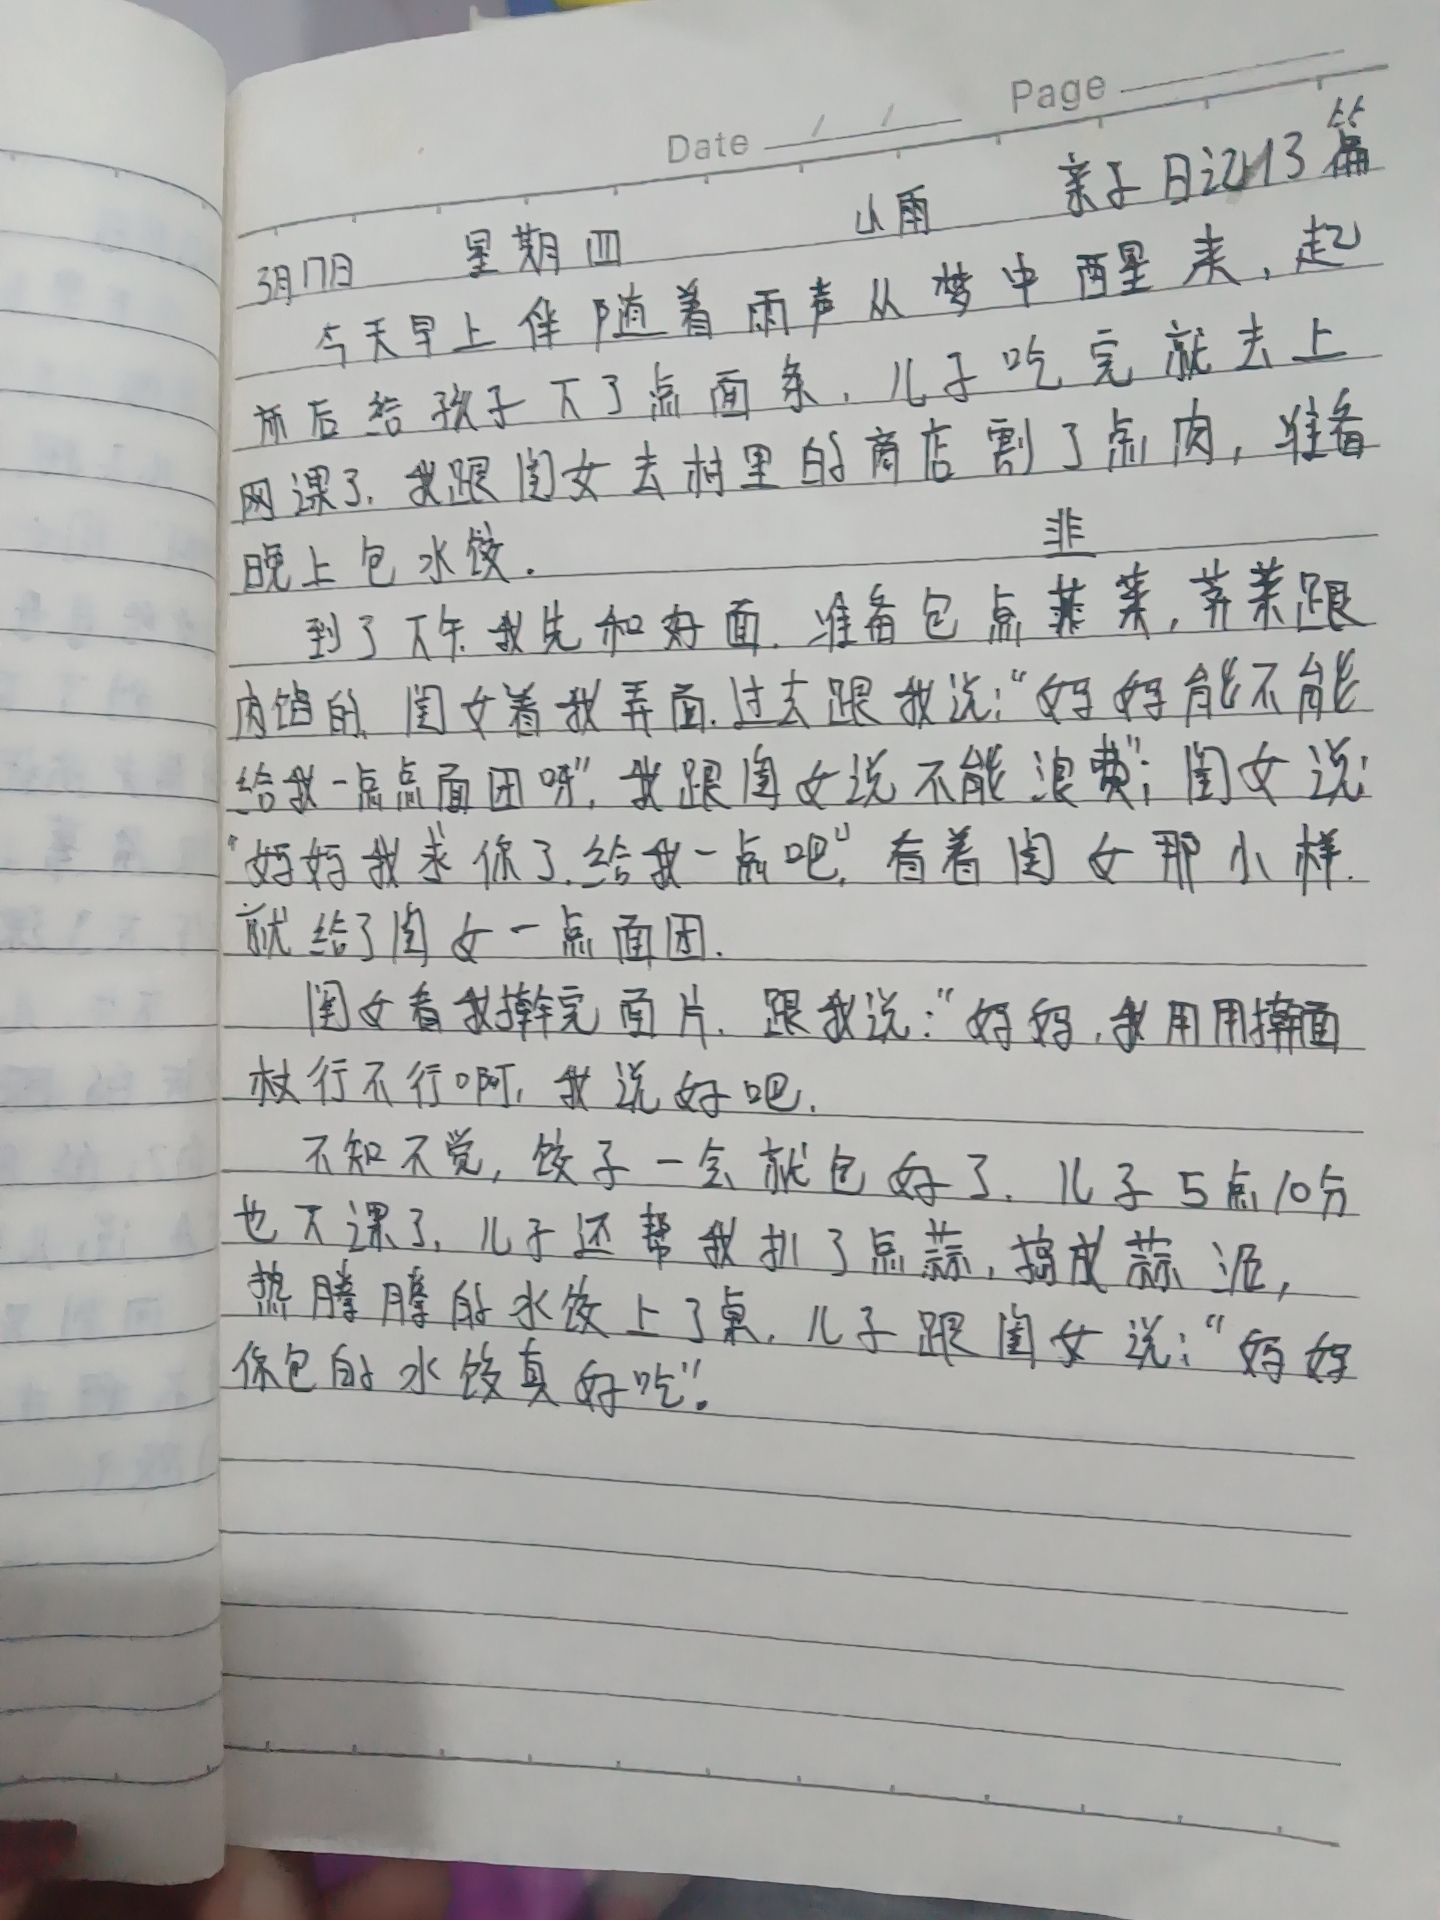 Date / / Page
亲子日记13篇
3月17日 星期四 小雨
今天早上伴随着雨声从梦中醒来,起
床后给孩子下了点面条,儿子吃完就去上
网课了,我跟闺女去村里的商店割了点肉,准备
晚上包水饺.
韭
到了下午,我先和好面,准备包点韮菜,荠菜跟
肉馅的,闺女着我弄面,过去跟我说:“妈妈能不能
给我一点点面团呀”,我跟闺女说不能浪费”;闺女说:
“妈妈我求你了,给我一点吧”,看着闺女那小样.
就给了闺女一点面团.
闺女看我擀完面片,跟我说:“妈妈,我用用擀面
杖行不行啊,我说好吧.
不知不觉,饺子一会就包好了.儿子5点10分
也下课了,儿子还帮我扒了点蒜,捣成蒜泥,
热腾腾的水饺上了桌,儿子跟闺女说:“妈妈
你包的水饺真好吃”.